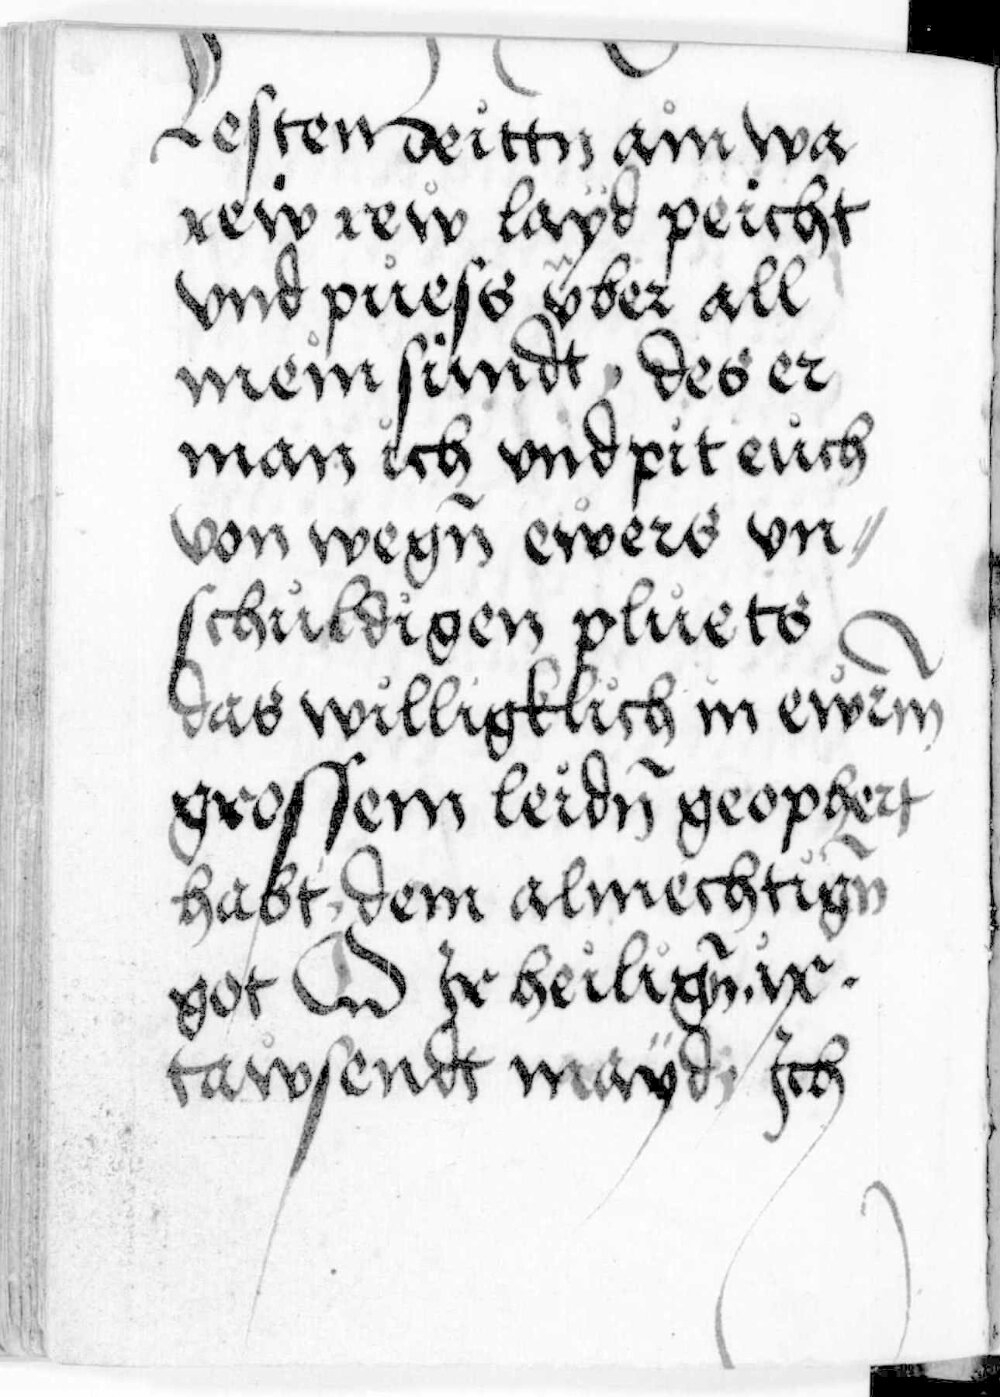 Lesten zeittn ain wa
rew rew layd peicht
vnd puess vber all
mein sundt, des er
man ich vnd pit euch
von wegn̄ ewers vn//
schuldigen pluets
das willigklich in ewrm̄
grossem leidn̄ geophert
habt, dem almechtign̄
got O Ir heilign̄ .ix.
tawsendt mayd, Ich